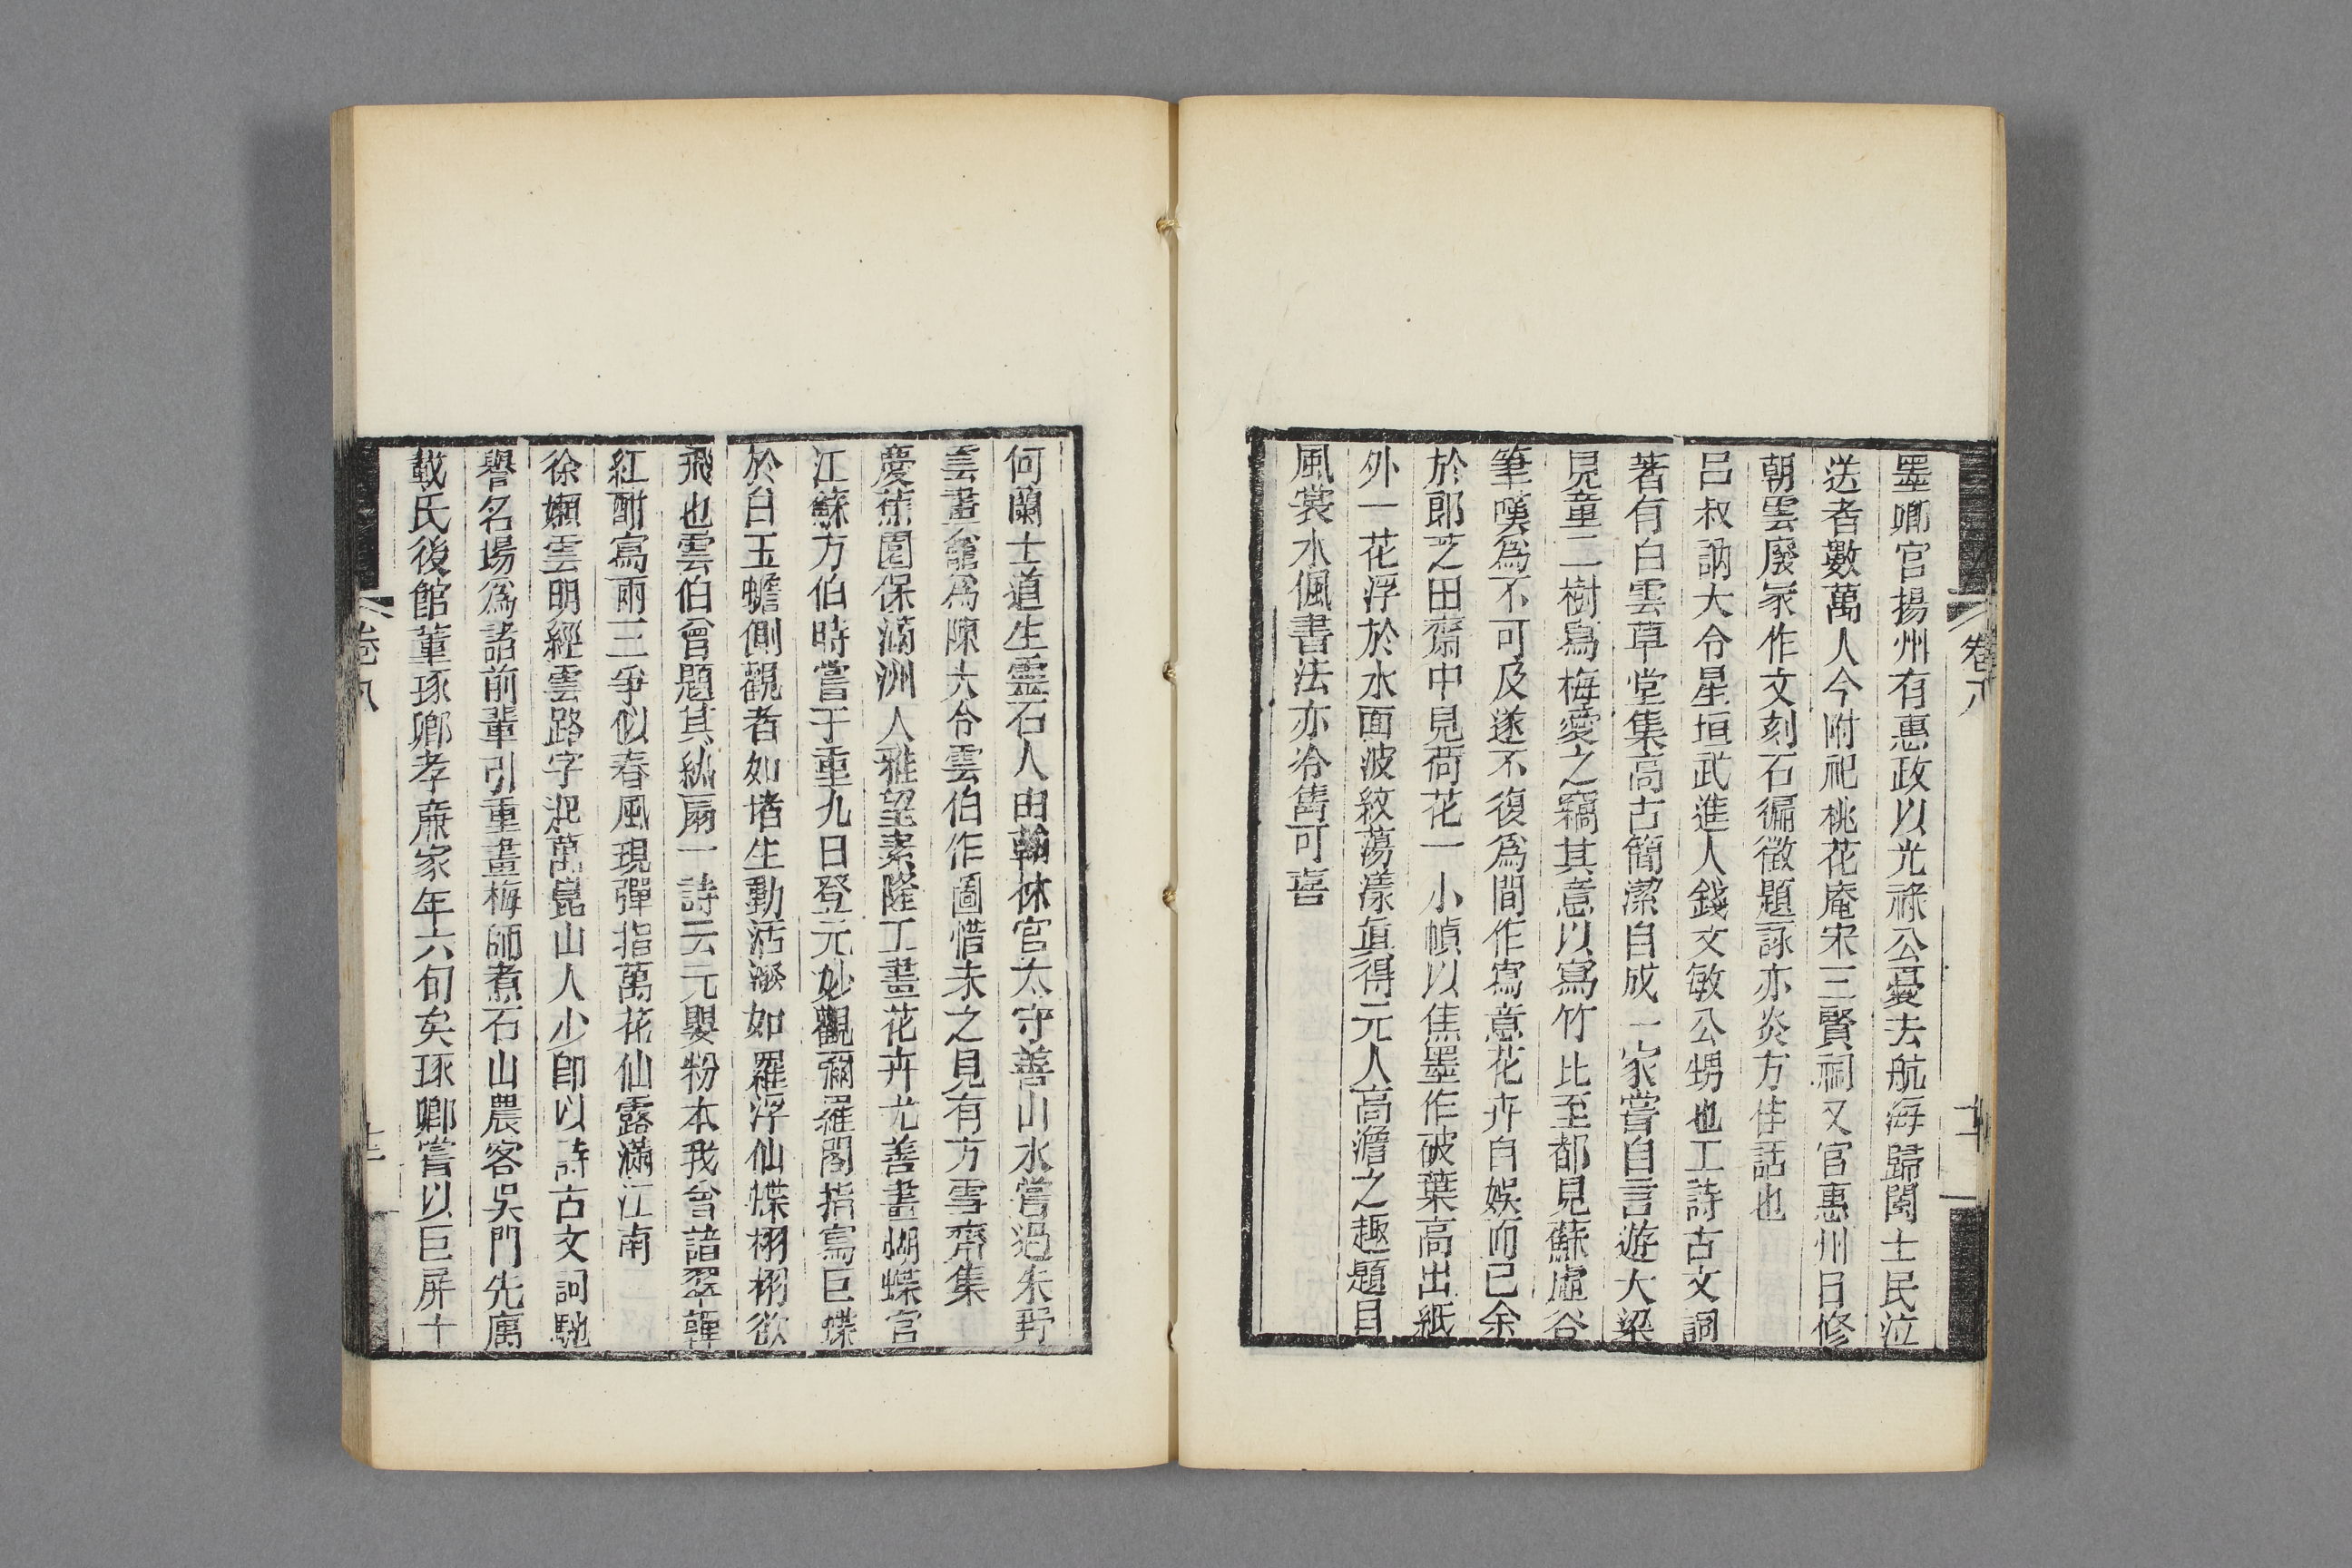 墨卿官揚州有惠政以光祿公憂去航海歸閩士民泣
送者數萬人今附祀桃花庵宋三賢祠又官惠州日修
朝雲廢冢作文刻石徧徵題詠亦炎方佳話也
呂叔訥大令星垣武進人錢文敏公甥也工詩古文詞
著有白雲草堂集高古簡潔自成一家嘗自言遊大梁
見童二樹寫梅愛之竊其意以寫竹比至都見蘇虛谷
筆嘆爲不可及遂不復爲間作寫意花卉自娛而已余
於郎芝田齋中見荷花一小幀以焦墨作破葉高出紙
外一花浮於水面波紋蕩漾眞得元人高澹之趣題目
風裳水佩書法亦冷雋可喜
卷八
十一
何蘭士道生靈石人由翰林官太守善山水嘗過朱野
雲畫龕爲陳大令雲伯作圖惜未之見有方雪齋集
慶蕉園保滿洲人雅望素隆工畫花卉尤善畫蝴蝶官
江蘇方伯時嘗于重九日登元妙觀彌羅閣指寫巨蝶
於白玉蟾側觀者如堵生動活潑如羅浮仙蝶栩栩欲
飛也雲伯曾題其紈扇一詩云元嬰粉本我曾諳翠嚲
紅酣寫雨三爭似春風現彈指萬花仙露滿江南
徐嬾雲明經雲路字㲼萬崑山人少卽以詩古文詞馳
譽名場爲諸前輩引重畫梅師煮石山農客吳門先寓
戴氏後館董琢卿孝廉家年六旬矣琢卿嘗以巨屏十
卷八
十二